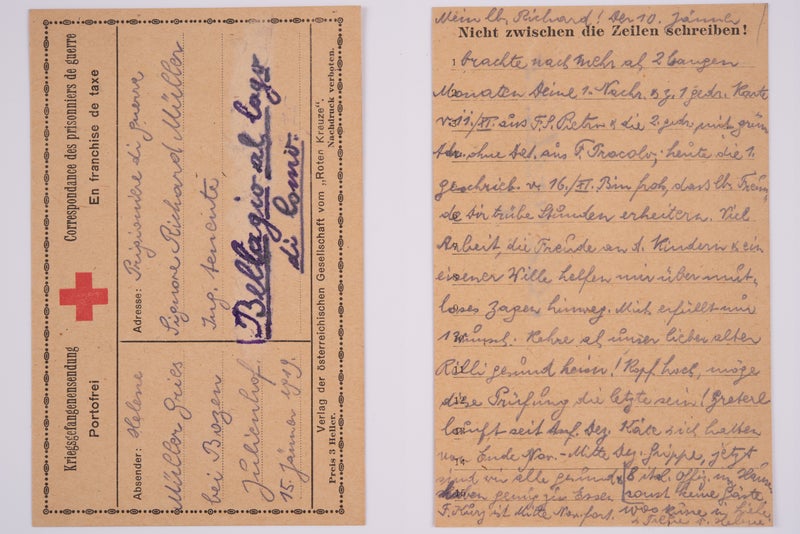 Kriegsgefangenensendung
Correspondance des prisonniers de guerre
Portofrei
En franchise de taxe
Absender: Helene
Müller Gries
bei Bozen
Julienhof.
15. Jänner 1919.
Adresse: Prigioniere di guerra
Signore Richard Müller
Ing. tenente
Bellagio al lago
di Como.
Verlag der österreichischen Gesellschaft vom „Roten Kreuze“.
Preis 3 Heller.
Nachdruck verboten.
Mein lb. Richard! Der 10. Jänner
Nicht zwischen die Zeilen schreiben!
1 brachte nach mehr als 2 bangen
Monaten Deine 1. Nachr. u. z. 1 gedr. Karte
v. 11./XI. aus F. S. Pietro & die 2. gedr. mit grün
Adr. ohne Dat. aus F. Procolo; heute die 1.
geschrieb. v. 16./XI. Bin froh, dass lb. Freun-
de Dir trübe Stunden erheitern. Viel
Arbeit, die Freude an d. Kindern & ein
eiserner Wille helfen mir über mut-
loses Zagen hinweg. Mich erfüllt nur
1 Wunsch. Kehre als unser lieber alter
gesund heim! Kopf hoch, möge
diese Prüfung die letzte sein! Greterl
lauft seit Anf. Dez. Käte & ich hatten
von Ende Nov. - Mitte Dez. Grippe, jetzt
sind wir alle gesund &
haben genug zu Essen
8 ital. Offiz. im Hause
sonst keine Gäste,
ist Mitte Nov. fort.
in Liebe
& Treue D. Helene.